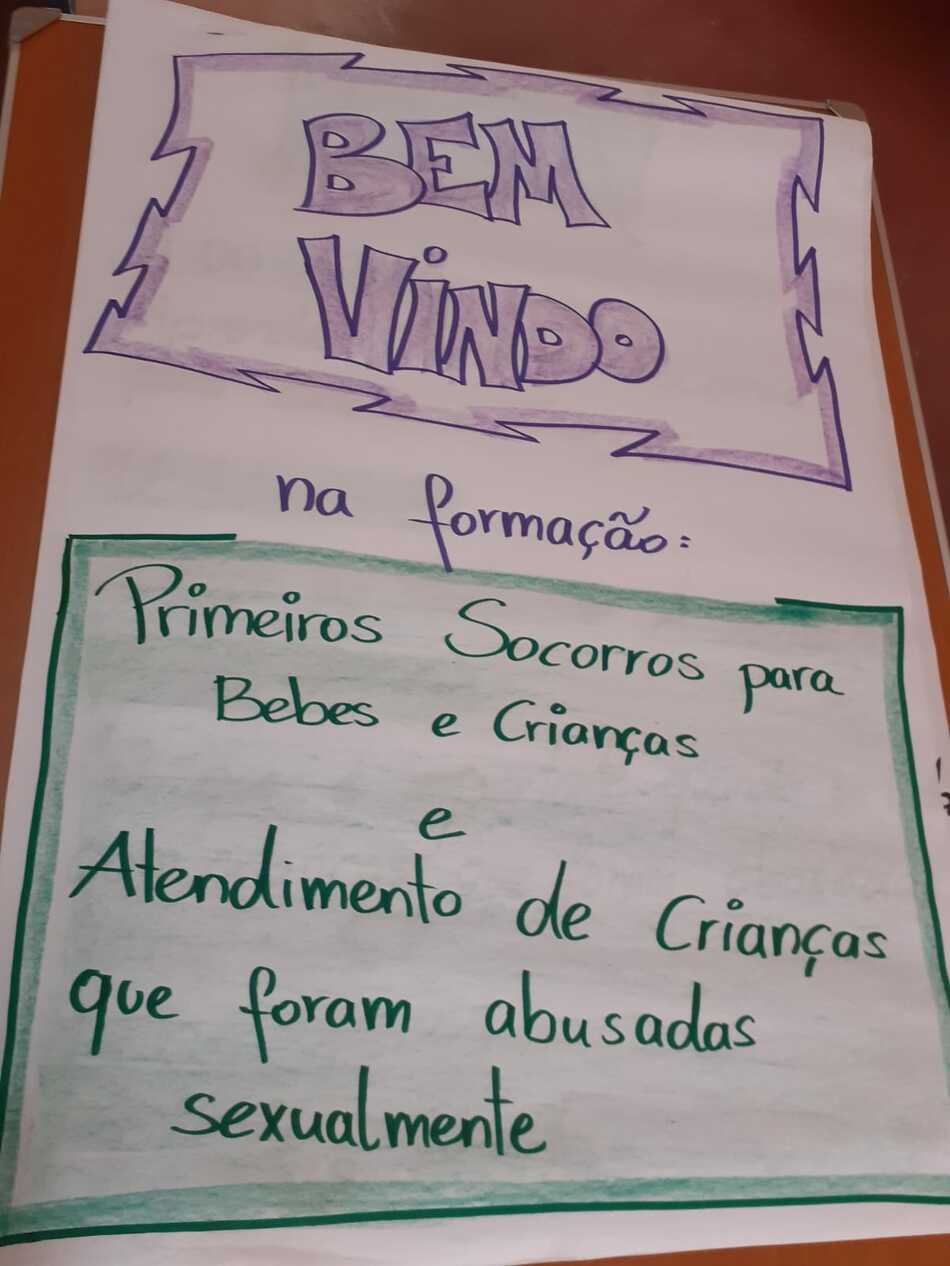 BEM
ViNDO
na formação:
Primeiros Socorros para
Bebes e Crianças
e
Atendimento de Crianças
que foram abusadas
sexualmente